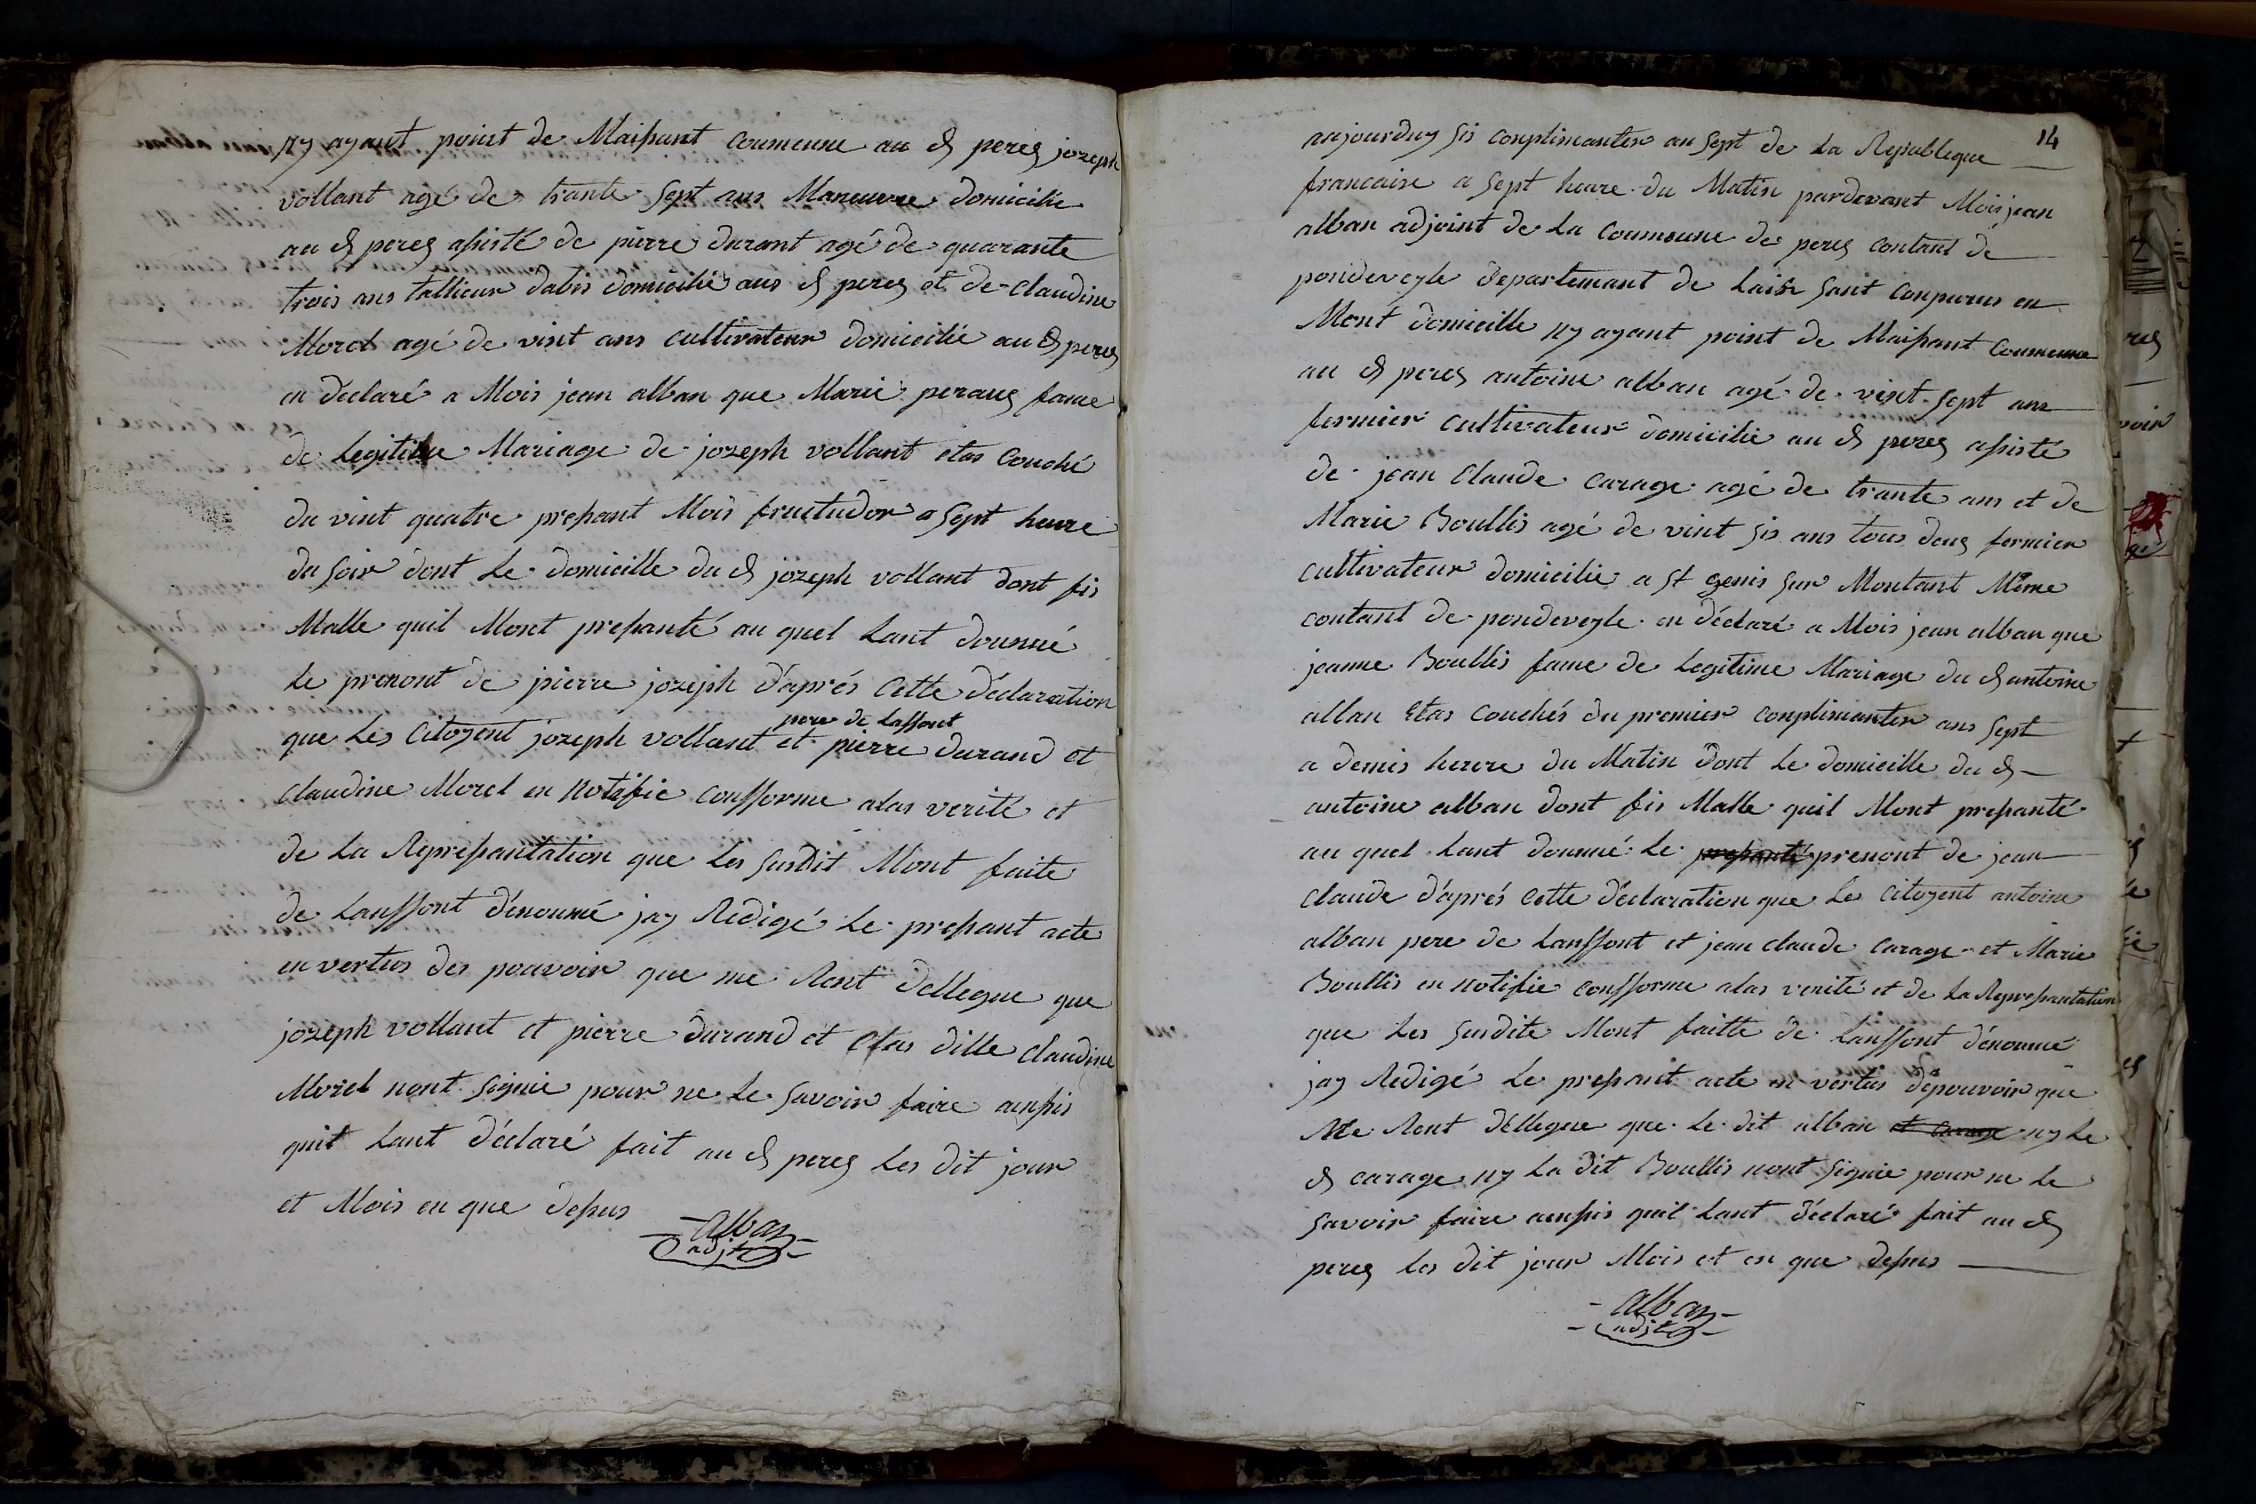 ny ayant point de Maissant Coumeune au d peres jozeph
vollant agé de trante sept ans Maneuvre domicilie
au d peres assisté de pierre durant agé de quarante
trois ans tallieur dabis domicilié aus d peres et de claudine
Morel agé de vint ans cultivateur domicilié au d peres
en declaré a Mois jean alban que Marie peraus fame
de legitime Mariage de jozeph vollant etas couché
du vint quatre pressant Mois fructudor a sept heure
du soir dont le domicille du d jozeph vollant dont fis
Malle quil Mont pressanté au quel lant dounné
le prenont de pierre jozeph d'aprés cette déclaration
pere de laffont
que les citoyent jozeph vollant et pierre durand et
claudine Morel en notifie confforme alas verité et
de la Repressantation que les susdit Mont faite
de lanffont dénoumé jay Redigé le pressant acte
en vertus des pouvoir que me Sont dellegue que
jozeph vollant et pierre durand et Etas ditte claudine
Morel nont signie pour ne le savoir faire ainssis
quit lant déclaré fait au d peres les dit jour
et Mois en que dessus
alban
adjt
14
aujourduy sis conplimanter an sept de la Republeque
francaise a sept heure du Matin pardevant Mois jean
alban adjoint de la coumeune de peres contant de
pondeveyle departemant de lais sont conparus en
Mont domicille ny ayant point de Maissant Coumeune
au d peres antoine alban agé de vint sept ans
fermier cultivateur domicilie au d peres assisté
de jean Claude carage agé de trante ans et de
Marie Boullis agé de vint sis ans tous deus fermier
cultivateur domicilie a st genis sur Montant Même
contant de pondeveyle en déclaré a Mois jean alban que
jeanne Boullis fame de legitime Mariage du d antoine
alban Etas couchés du premier conplimanter ans sept
a demis heure du Matin dont le domicille du d
antoine alban dont fis Malle quil Mont pressanté
au quel lant dounné le pressanté prenont de jean
claude d'aprés cette déclaration que les citoyent antoine
alban pere de lanffont et jean claude carage et Marie
Boullis en notifie confforme alas verité et de la Repressantation
que les susdite Mont faitte de lanffont dénoumé
jay Redigé le pressant acte en vertus dépouvoir que
Me Sont déllegue que le dit alban et carage ny le
d carage ny la dit Boullis nont signie pour ne le
savoir faire ainssis quil lant déclaré fait au d
peres les dit jour Mois et en que dessus
alban
adjt